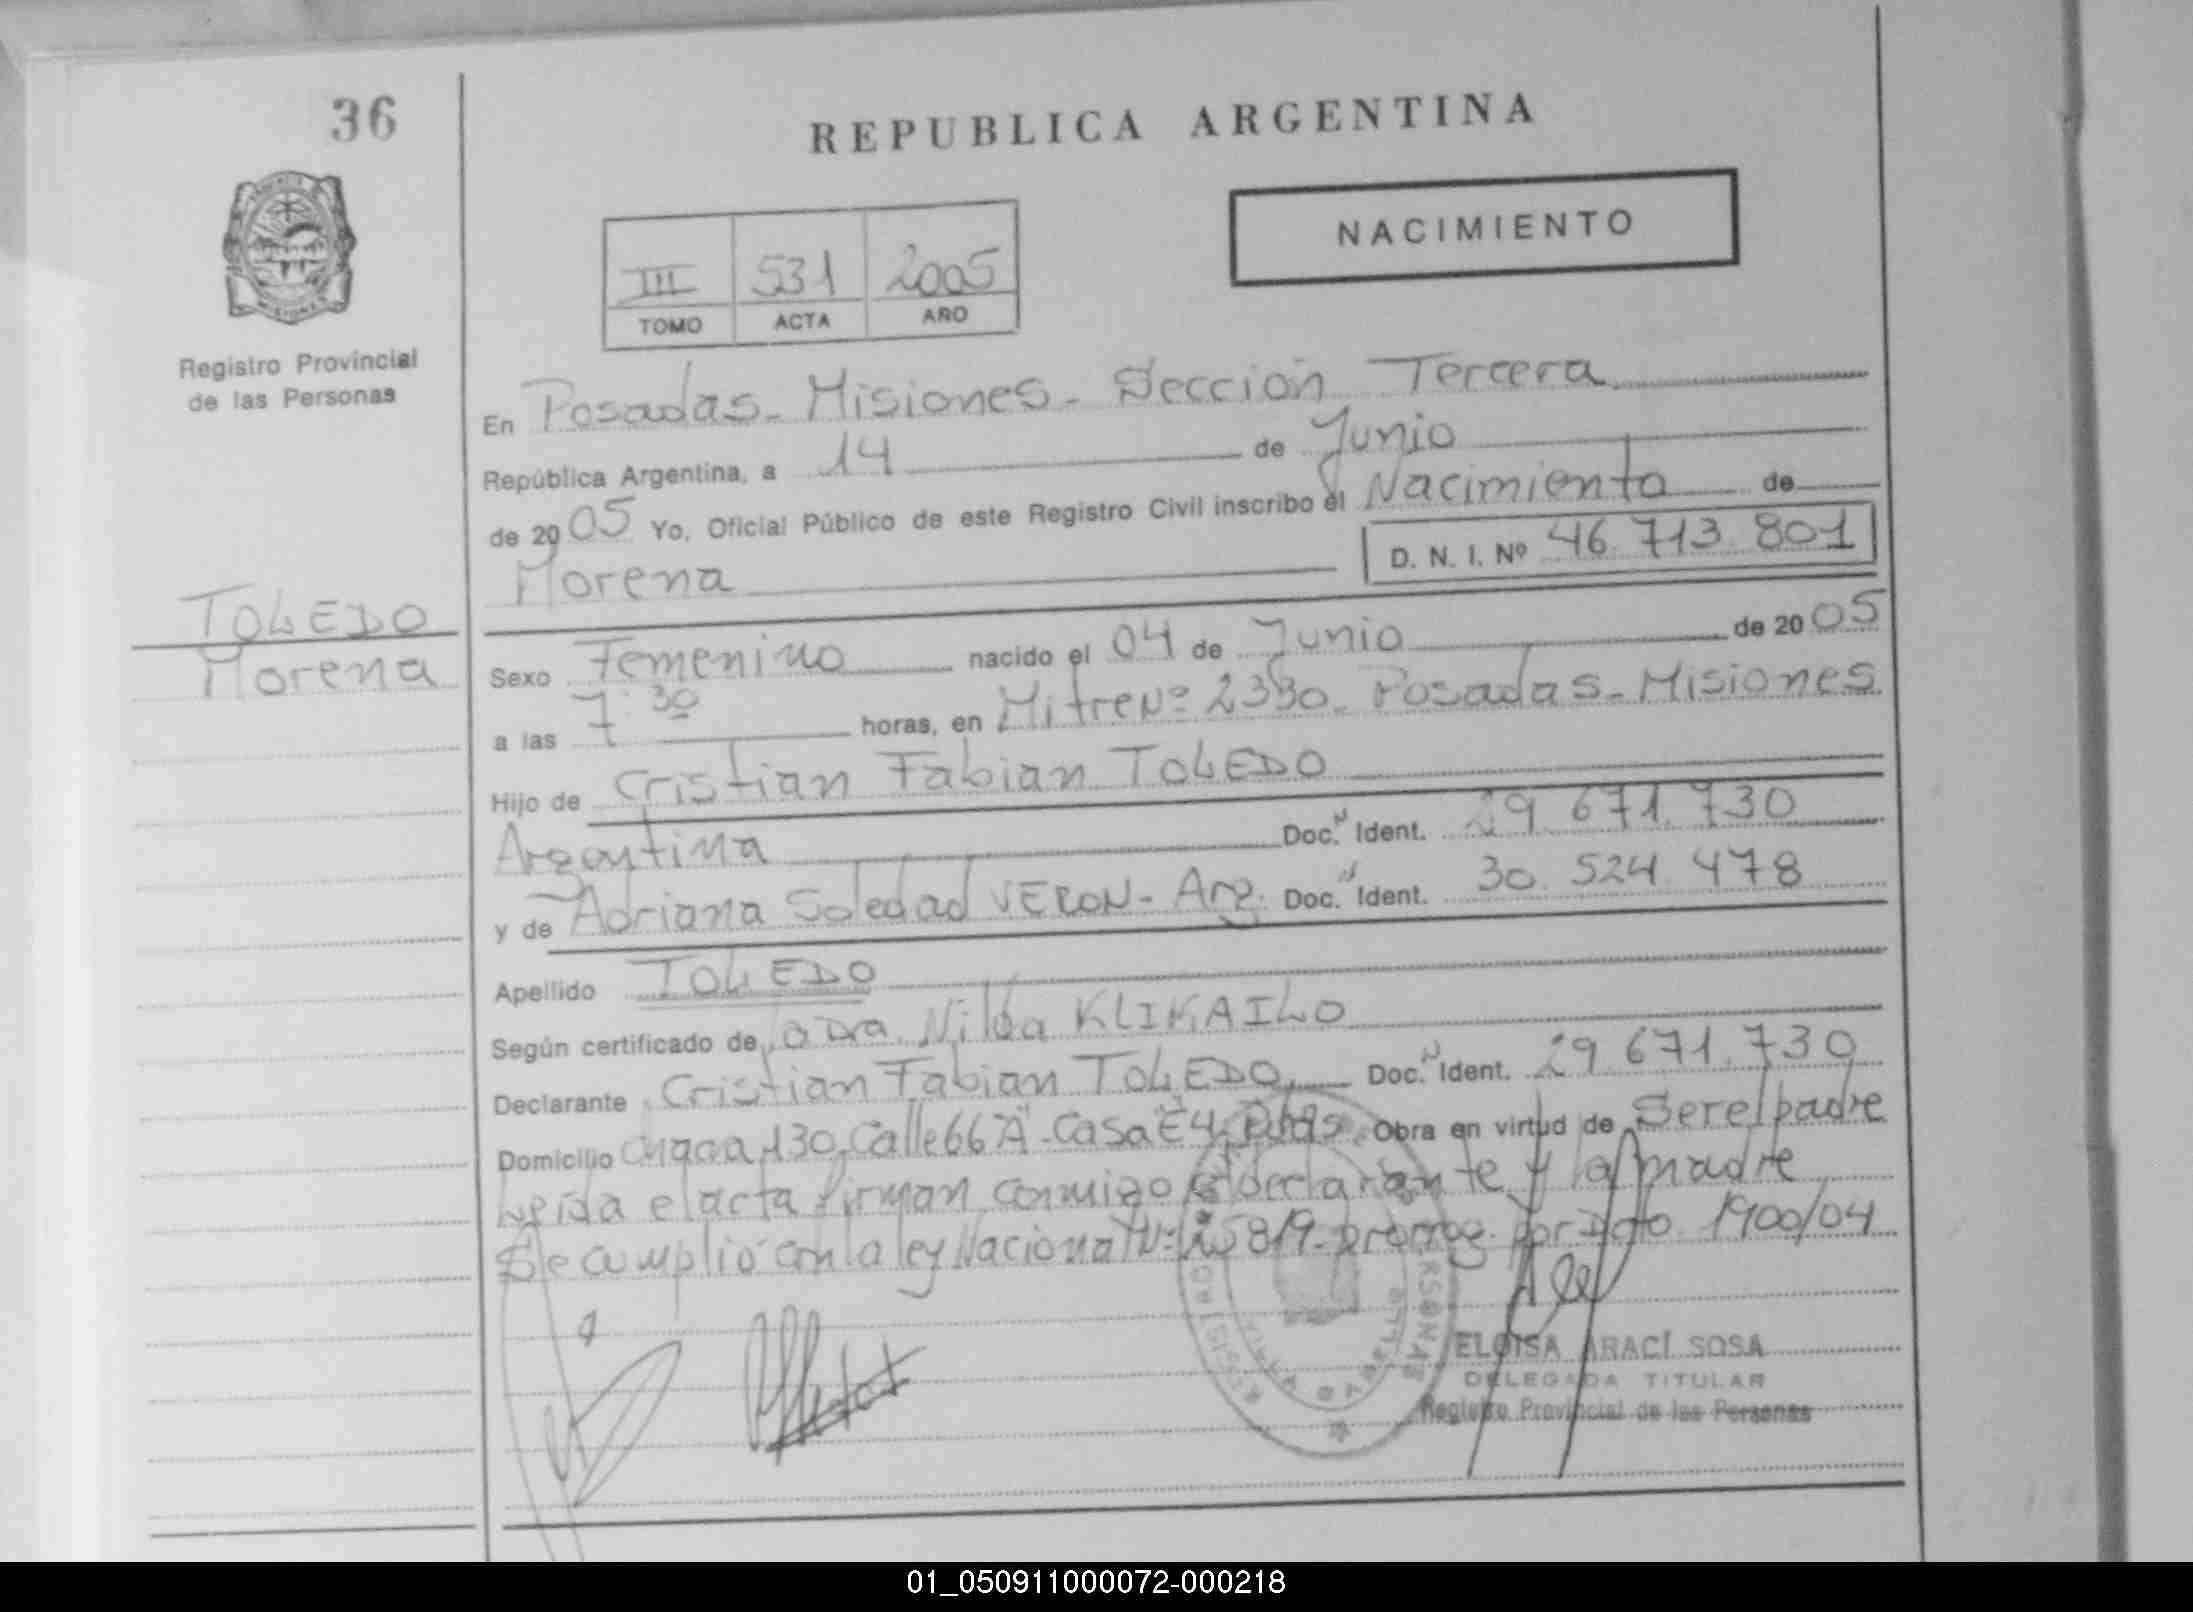 36
REPUBLICA ARGENTINA
NACIMIENTO
III 531 2005
TOMO ACTA AÑO
Registro Provincial
de las Personas
En Posadas - Misiones - Sección Tercera
República Argentina, a 14 de Junio
de 2005 Yo, Oficial Público de este Registro Civil inscribo el Nacimiento de
Morena D. N. I. Nº 46.713.801
TOLEDO
Morena
Sexo Femenino nacido el 04 de Junio de 2005
a las 7:30 horas, en Mitre Nº 2330 - Posadas - Misiones
Hijo de Cristian Fabian TOLEDO
Argentina Doc. N Ident. 29.671.730
y de Adriana Soledad VERON - Arg. Doc. N Ident. 30.524.478
Apellido TOLEDO
Según certificado de la Dra. Nilda KLIKAILO
Declarante Cristian Fabian TOLEDO Doc. N Ident. 29.671.730
Domicilio Chacra 130, Calle 66 "A" - Casa "E4" Obra en virtud de Ser el padre
Leida el acta firman conmigo el declarante y la madre
Se cumplió con la ley Nacional Nº 25819 - prorrog. por Dcto. 1900/04
ELOISA ARACÍ SOSA
DELEGADA TITULAR
Registro Provincial de las Personas
01_050911000072-000218